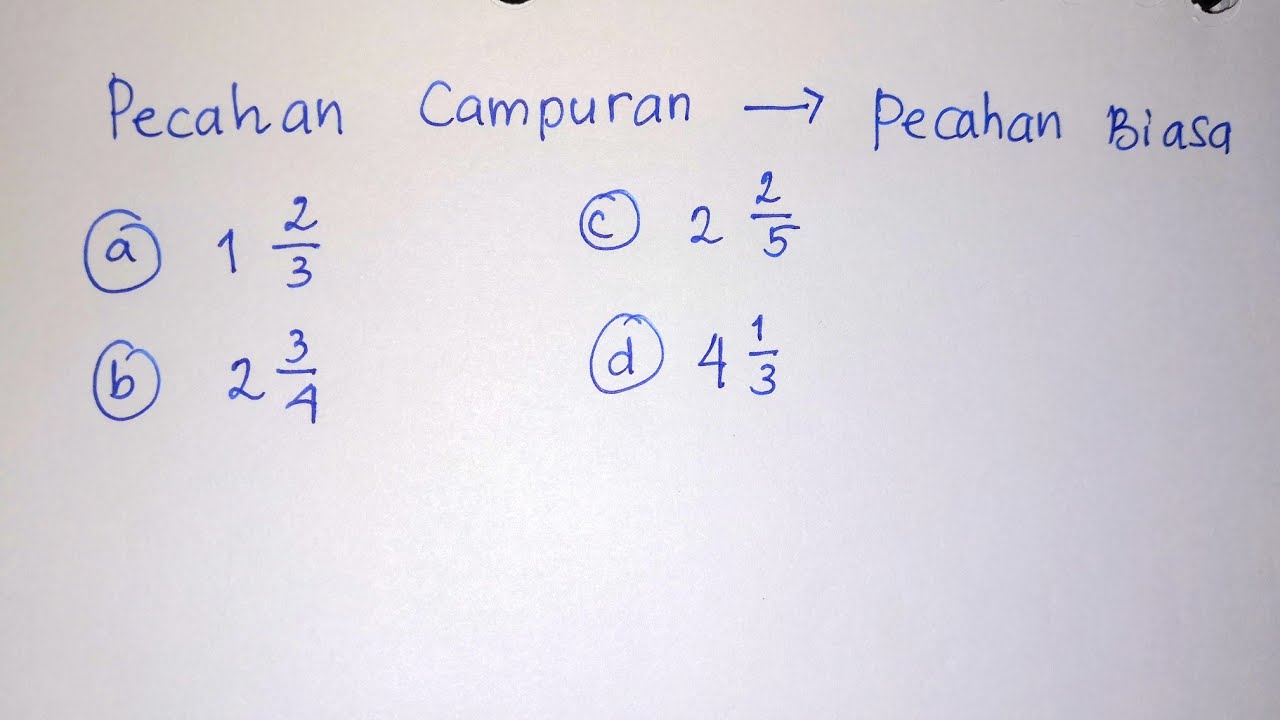 Pecahan Campuran → Pecahan Biasa
ⓐ 1 2/3
ⓑ 2 3/4
ⓒ 2 2/5
ⓓ 4 1/3